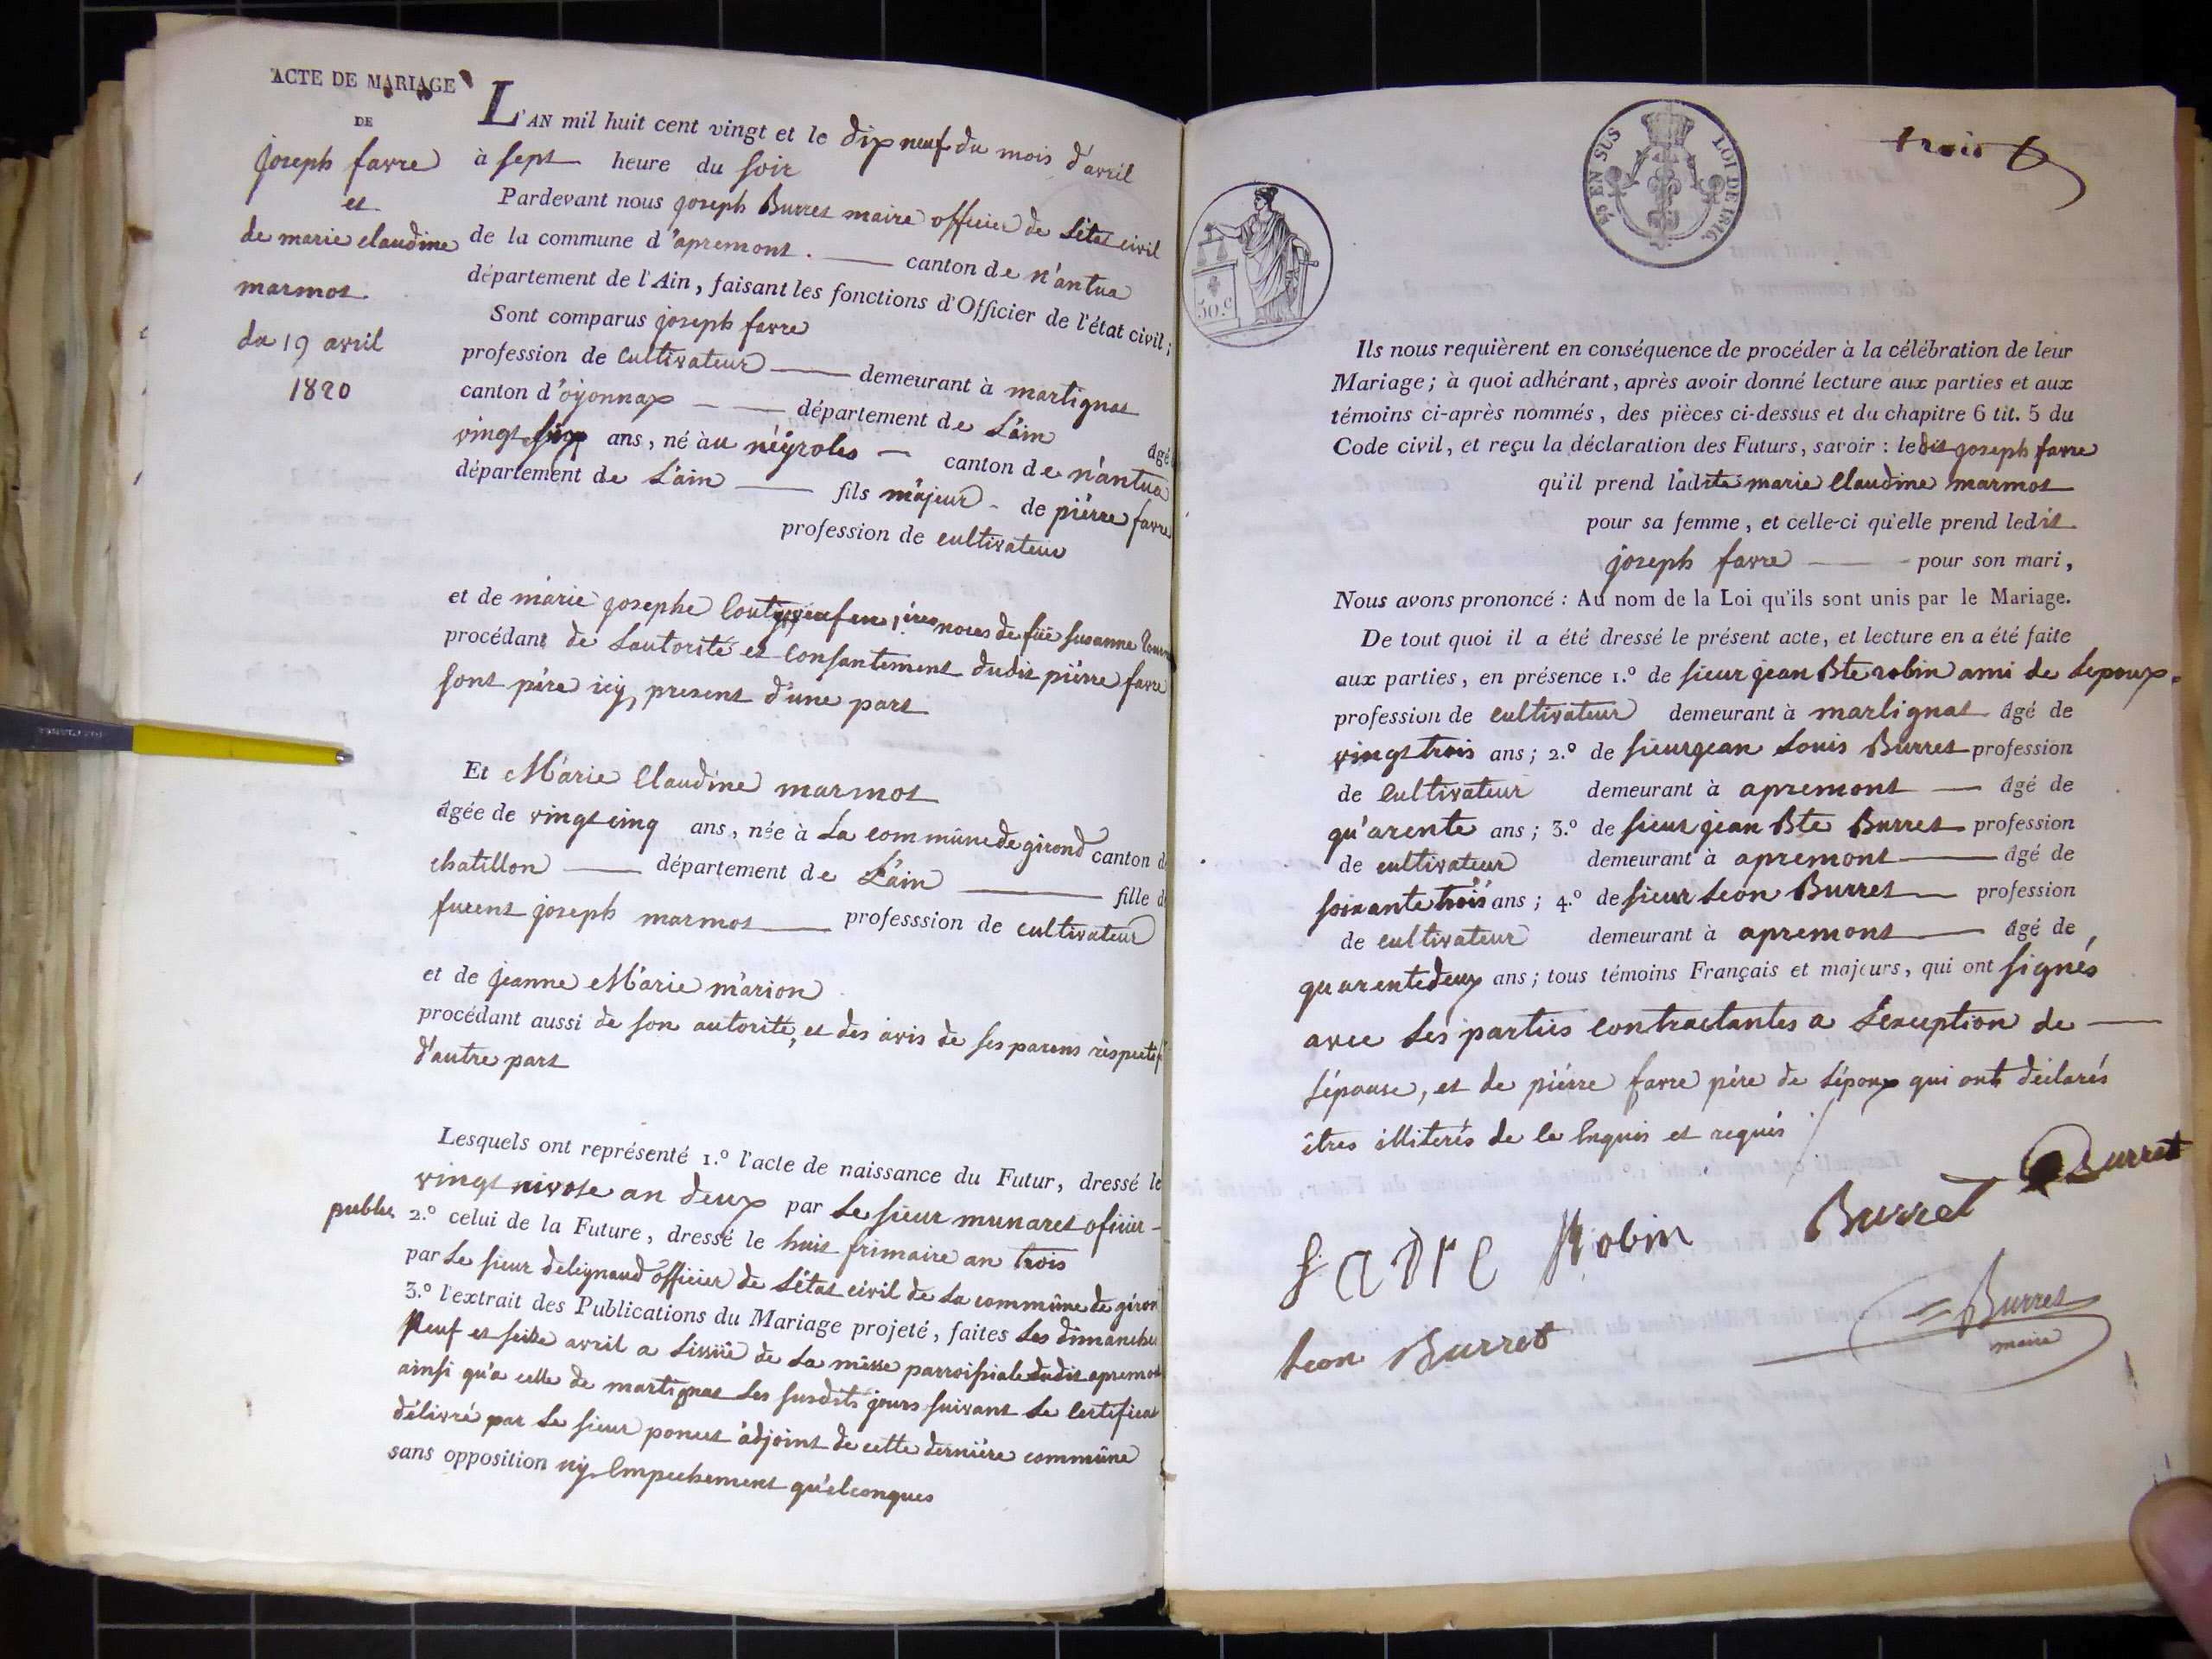 ACTE DE MARIAGE
DE
joseph favre
et
de marie claudine
marmot
du 19 avril
1820
L'AN mil huit cent vingt et le dix neuf du mois d'avril
à sept heure du soir
Pardevant nous joseph Burret maire officier de L'état civil
de la commune d'apremont. canton de n'antua
département de l'Ain, faisant les fonctions d'Officier de l'état civil;
Sont comparus joseph favre
profession de cultivateur demeurant à martignat
canton d'oÿonnax département de L'ain agé
vingt six ans, né àu néÿroles canton de n'antua
département de L'ain fils màjeur de piérre favre
profession de cultivateur
et de màrie josephe noces de füe susanne
procédant de Lautorité et Consantement dudit piérre favre
sont pére icÿ present d'une part
Et Màrie Claudine marmot
âgée de vingt cinq ans, née à La commûne de girond canton de
chatillon département de L'ain fille de
furent joseph marmot professsion de cultivateur
et de jeanne Màrie màrion
procédant aussi de son autorité, et des avis de ses parens réspectifs
d'autre part
Lesquels ont représenté 1.° l'acte de naissance du Futur, dressé le
vingt nivose an deux par Le sieur munaret ofiiir
public 2.° celui de la Future, dressé le huit frimaire an trois
par Le sieur delignaud officier de L'état civil de La commûne de giron
3.° l'extrait des Publications du Mariage projeté, faites Les dimanches
Neuf et seize avril a Lissüe de La mésse parroissiale dudit apremont
ainsi qu'a celle de martignat Les susdits jours suivant Le Certificat
délivré par Le sieur ponut àdjoint de cette derniére commûne
sans opposition nÿ Empechement qu'elconques
50.c
25 EN SUS LOI DE 1816.
trois
Ils nous requièrent en conséquence de procéder à la célébration de leur
Mariage; à quoi adhérant, après avoir donné lecture aux parties et aux
témoins ci-après nommés, des pièces ci-dessus et du chapitre 6 tit. 5 du
Code civil, et reçu la déclaration des Futurs, savoir : ledit joseph favre
qu'il prend ladite marie Claudine marmot
pour sa femme, et celle-ci qu'elle prend ledit
joseph favre pour son mari,
Nous avons prononcé : Au nom de la Loi qu'ils sont unis par le Mariage.
De tout quoi il a été dressé le présent acte, et lecture en a été faite
aux parties, en présence 1.° de sieur jean Bte robin ami de Lepoux
profession de cultivateur demeurant à martignat âgé de
vingt trois ans; 2.° de sieur jean Louis Burret profession
de Cultivateur demeurant à apremont âgé de
qu'arente ans; 3.° de sieur jean Bte Burret profession
de cultivateur demeurant à apremont âgé de
soixante trois ans; 4.° de sieur Leon Burret profession
de cultivateur demeurant à apremont âgé de
quarente deux ans; tous témoins Français et majeurs, qui ont signés
avec Les parties contractantes a L'exception de
Lépouse, et de piérre favre pére de Lépoux qui ont déclarés
êtres illiterés de ce Enquis et requis
Burret
favre Robin Burret
Leon Burret
Burret
maire